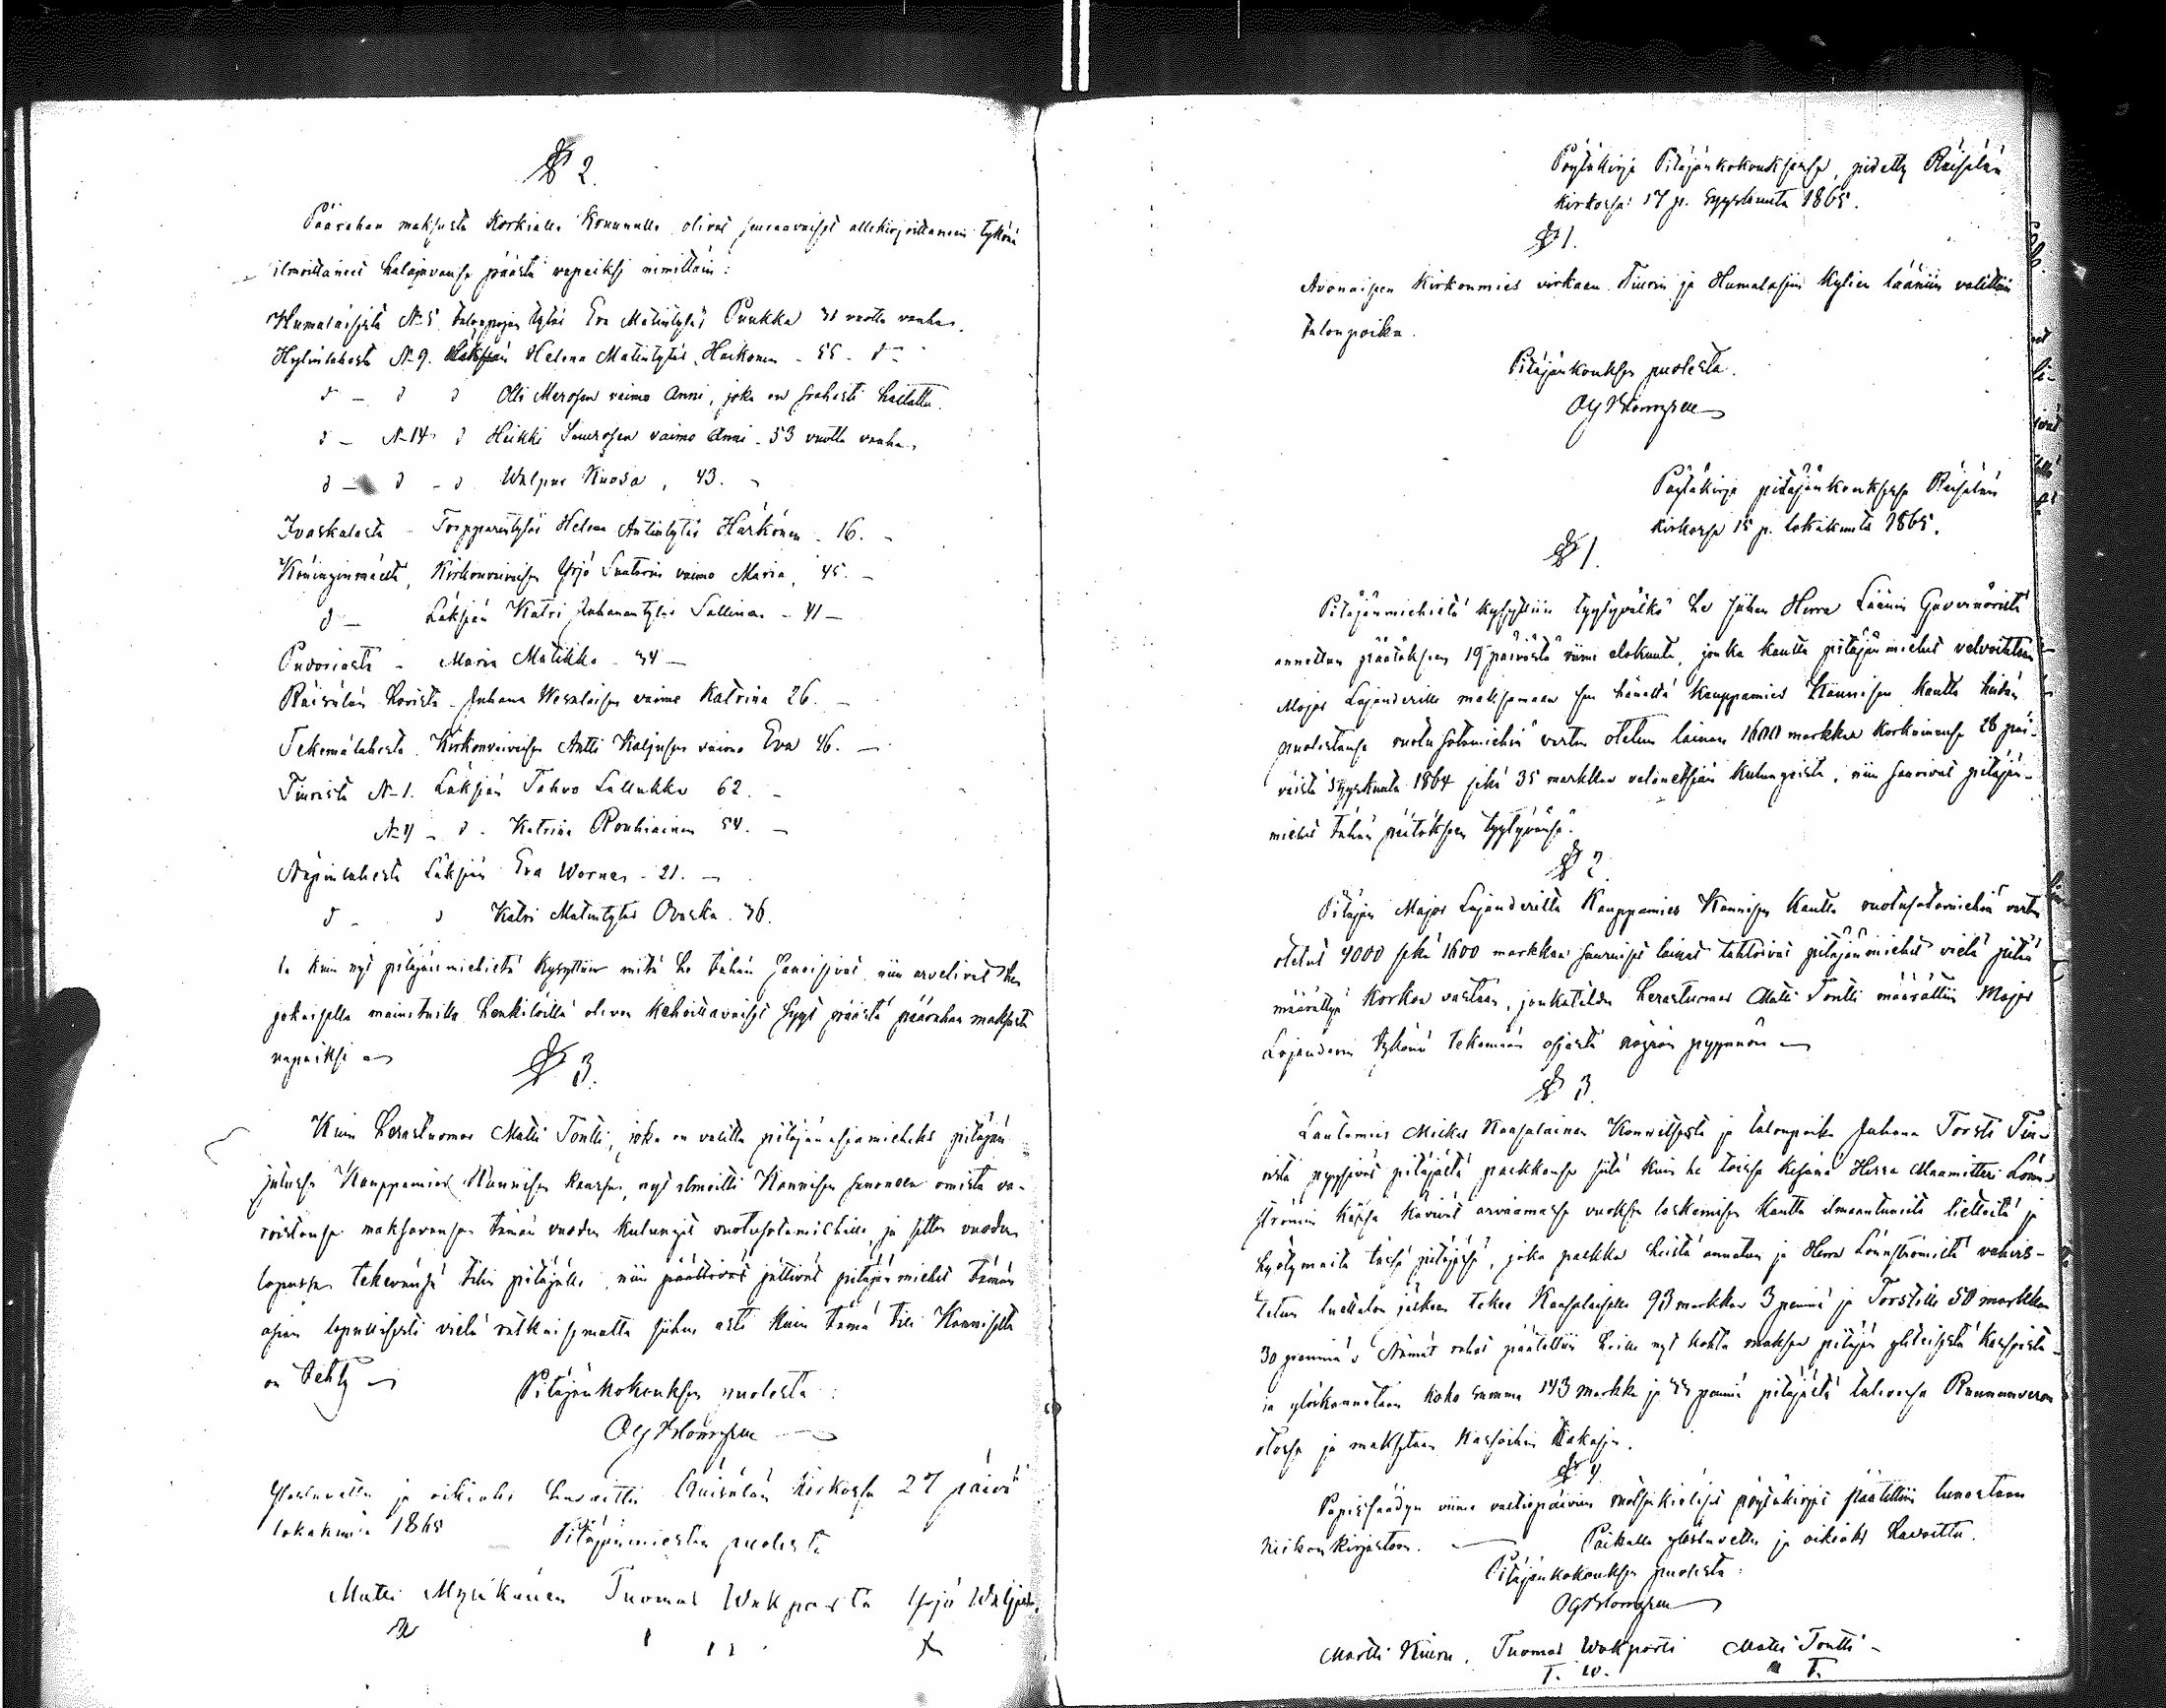 § 2.
Päärahan maksusta Korkialle Kruunulle olivat seuraavaiset allekirjoittaneen tykönä
ilmoittaneet halajavansa päästä vapaiksi nimittäin:
Humalaisista N:5 talonpojan tytär Eva Matintytär Puukka 31 vuotta vanha,
Hytinlahesta N:9. Läksiän Helena Matintytär Haikonen - 55 - d:-
d - d d Olli Merosen vaimo Anni, joka on haluttu.
d - N-14 d Heikki vaimo Anni - 53 vuotta vanha,
d - d - d Walpur Kuosa, 43. -
Ivaskalasta - Torpparintytär Helena Antintytär Härkönen - 16. -
Köninginmäeltä, Kirkonvaivaisen Yrjö vaimo Maria, 45. -
d - Läksiän Katri Juhanantytär Sallinen - 41 -
Pudoriasta - Maria Matikka - 34 -
Räisälän Hovista - Juhana Wesalaisen vaimo Katrina 26. -
Tekemälahesta Kirkonvaivaisen Antti Kaljusen vaimo Eva 46. -
Tiurista N-1. Läksiän Tahvo Lallukka 62. -
N:4 - d - Katrina Rouhiainen 54. -
Näpinlahesta Läksiän Eva Wornas - 21. -
d - d Katri Matintytär Ovaska. 36.
Ja kuin nyt pitäjänmiehistä kysyttiin mitä he tähän sanoisivat, niin arvelivat he
jokaisella mainitulla henkilöillä olevan kohtuulliset syyt päästä päärahan maksusta
vapaiksi
§ 3.
Kuin Herastuomar Matti Tontti, joka on valittu pitäjän asiamieheks pitäjän
jutussa Kauppamies Kannisen kanssa, nyt ilmoitti Kannisen sanoneen omista va-
roistansa maksavansa tämän vuoden kulungit ruotusotamiehille, ja sitte vuoden
lopussa tekevänsä tilin pitäjälle, niin päättivät jättivät pitäjänmiehet tämän
asian lopullisesti vielä ratkaisematta siihen asti kuin tämä tili Kanniselta
on tehty
Pitäjänkokouksen puolesta:
OG Blomgren
Ylösluettu ja oikiaks havaittu Räisälän kirkossa 27 päivä
lokakuuta 1865 Pitäjänmiesten puolesta
Matti Myrikänen Tuomas Wakparta Yrjö
Pöytäkirja Pitäjänkokouksessa, pidetty Räisälän
kirkossa 17 p. Syyskuuta 1865.
§ 1.
Avonaisen kirkonmies virkaan Tiurin ja Humalaisten kylien lääniin valittiin
talonpoika.
Pitäjänkouksen puolesta.
OG Blomgren
Pöytäkirja pitäjänkouksessa Räisälän
kirkossa 15 p. lokakuuta 1865.
§ 1.
Pitäjänmiehiltä kysyttiin tyytyvätkö he siihen Herra Läänin Guvernöriltä
annettuun päätökseen 19 päivästä viime elokuuta, jonka kautta pitäjän miehet velvoitetaan
Major Lajanderille maksamaan sen häneltä Kauppamies Kannisen kautta heidän
puolestansa ruotusotamiehiä varten otetun lainan 1600 markkaa korkoinensa 28 päi-
västä Syyskuuta 1864 sekä 35 markkaa velanetsiän kulungeista, niin sanoivat pitäjän-
miehet tähän päätökseen tyytyvänsä.
§ 2.
Pitäjän Major Lajanderilta Kauppamies Kannisen kautta ruotusotamiehiä varten
otetut 4000 sekä 1600 markkaa suuruiset lainat tahtoivat pitäjänmiehet vielä pitää
määrättyä korkoa vastaan, jonkatähden Herastuomar Matti Tontti määrättiin Major
Lajanderin tykönä tekemään asiasta nöyrän pyynnön
§ 3.
Lautamies Mickel Naasalainen Konnitsasta ja talonpoika Juhana Torsti Tiu-
rista pyysivät pitäjältä palkkansa siitä kuin he toissa kesänä Herra Maamittari Lönn-
strömin kanssa kävivät arvaamassa vuoksen laskemisen kautta ilmaantuneita lietteitä ja
hyötymaita tässä pitäjässä, joka palkka heistä annetun ja Herra Lönnströmiltä vahvis-
tetun luettelon jälkeen tekee Naasalaiselle 93 markkaa 3 penniä ja Torstille 50 markkaa
30 penniä. Nämät rahat päätettiin heille nyt kohta maksaa pitäjän yhteisestä kassoista
ja ylöskannetaan koko summa 143 markka ja 33 penniä pitäjästä tulevassa Ruununveron
otossa ja maksetaan kassoihin takasin.
§ 4.
Papissäädyn viime valtiopäivien ruotsinkieliset pöytäkirjat päätettiin lunastaa
kirkonkirjastoon. Paikalla ylösluettu ja oikiaks havaittu.
Pitäjänkokouksen puolesta:
OG Blomgren
Martti Kiuru, Tuomas Wakparti Matti Tontti -
T. W. T.